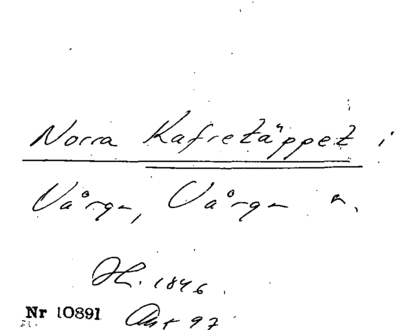 Norra Kafretäppet i
Vårgn, Vårgn n.
H. 1846.
Nr 10891 Ant 97